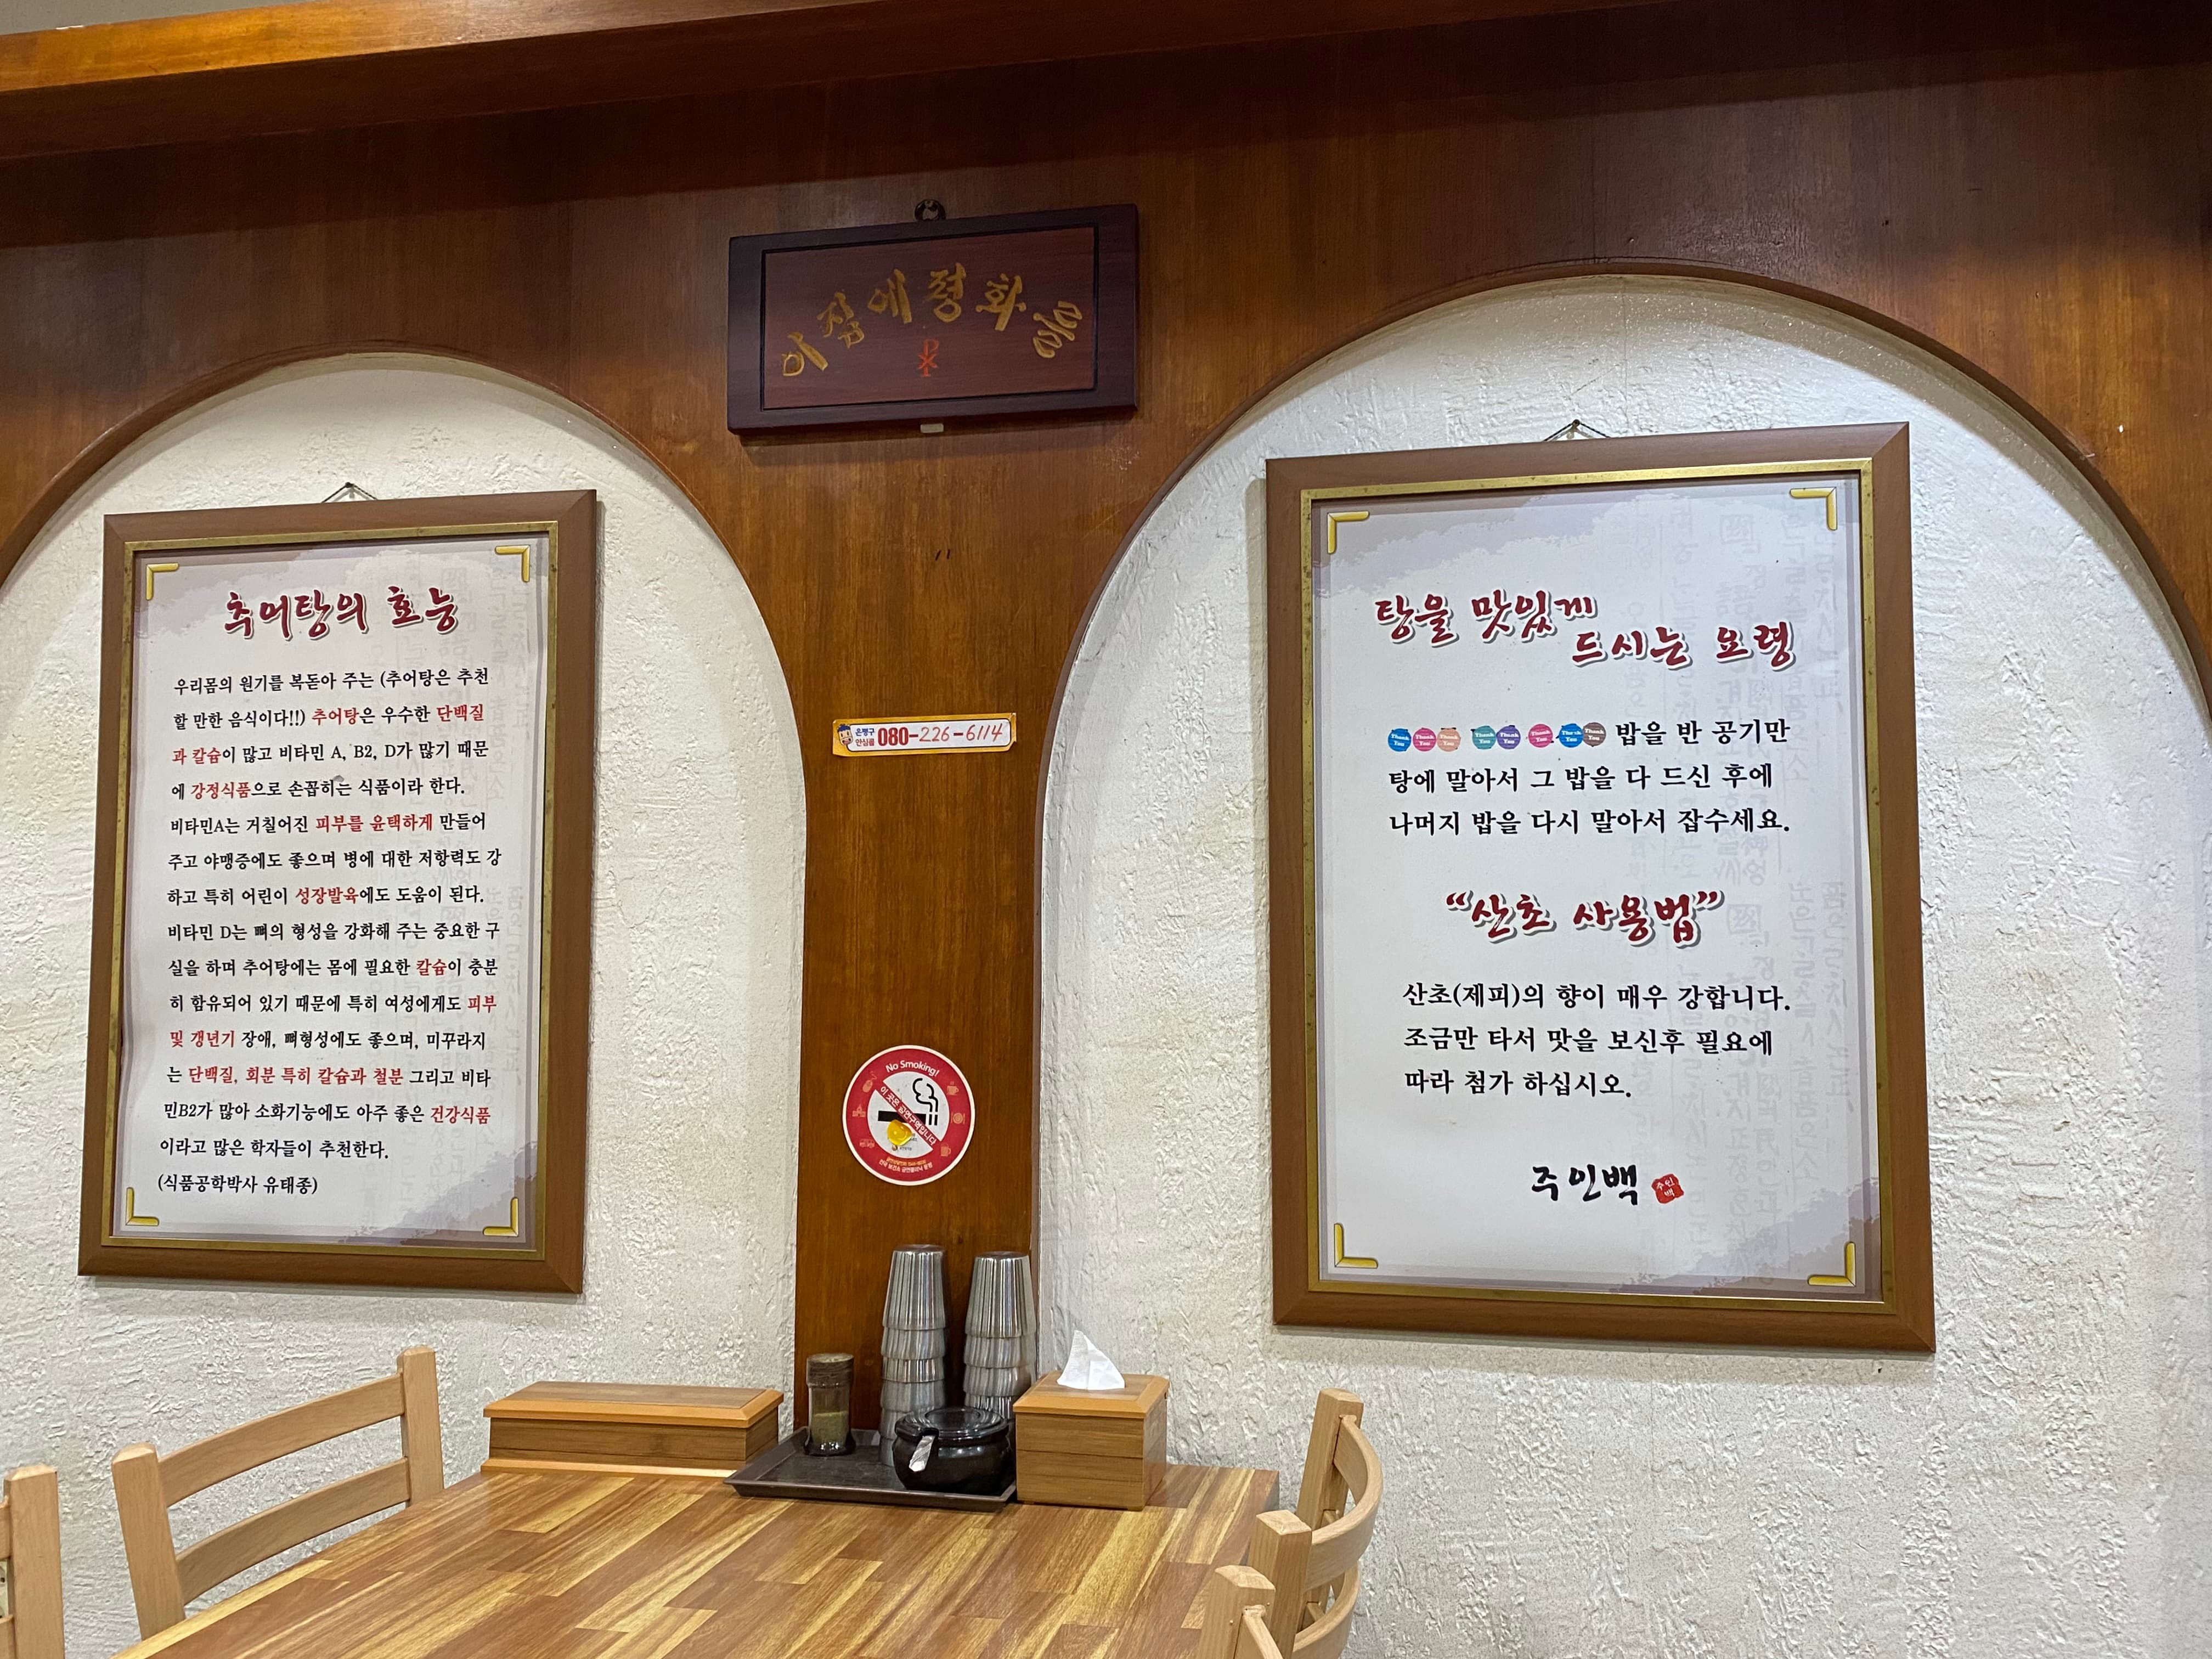 이 집에 평화를
추어탕의 효능
우리몸의 원기를 복돋아 주는 (추어탕은 추천
할 만한 음식이다!!) 추어탕은 우수한 단백질
과 칼슘이 많고 비타민 A, B2, D가 많기 때문
에 강정식품으로 손꼽히는 식품이라 한다.
비타민A는 거칠어진 피부를 윤택하게 만들어
주고 야맹증에도 좋으며 병에 대한 저항력도 강
하고 특히 어린이 성장발육에도 도움이 된다.
비타민 D는 뼈의 형성을 강화해 주는 중요한 구
실을 하며 추어탕에는 몸에 필요한 칼슘이 충분
히 함유되어 있기 때문에 특히 여성에게도 피부
및 갱년기 장애, 뼈형성에도 좋으며, 미꾸라지
는 단백질, 회분 특히 칼슘과 철분 그리고 비타
민B2가 많아 소화기능에도 아주 좋은 건강식품
이라고 많은 학자들이 추천한다.
(식품공학박사 유태종)
은평구
안심콜 080-226-6114
No Smoking!
이 곳은 금연구역입니다
탕을 맛있게
드시는 요령
Thank You Thank You Thank You Thank You Thank You Thank You Thank You Thank You 밥을 반 공기만
탕에 말아서 그 밥을 다 드신 후에
나머지 밥을 다시 말아서 잡수세요.
“산초 사용법”
산초(제피)의 향이 매우 강합니다.
조금만 타서 맛을 보신후 필요에
따라 첨가 하십시오.
주인백 주인백